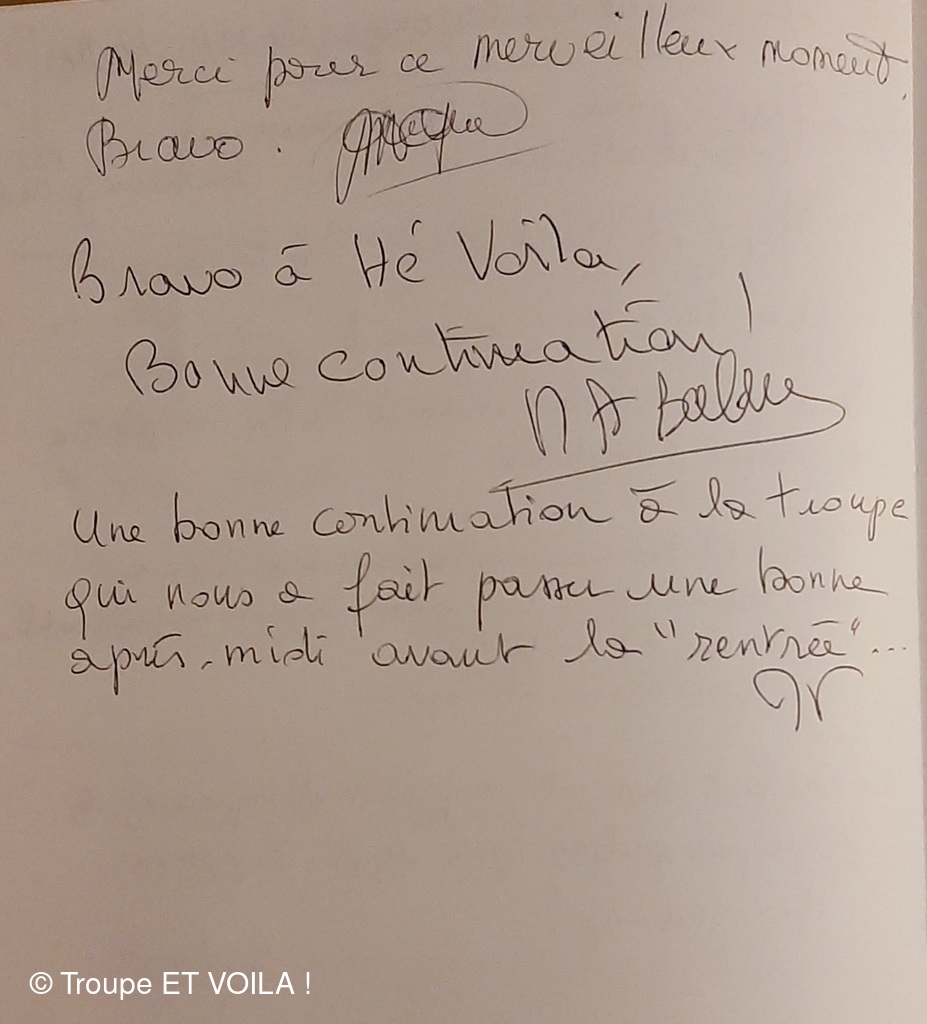 Merci pour ce merveilleux moment.
Bravo.
Bravo à Hé Voila,
Bonne continuation !
Une bonne continuation à la troupe
qui nous a fait passer une bonne
après-midi avant la "rentrée"...
© Troupe ET VOILA !